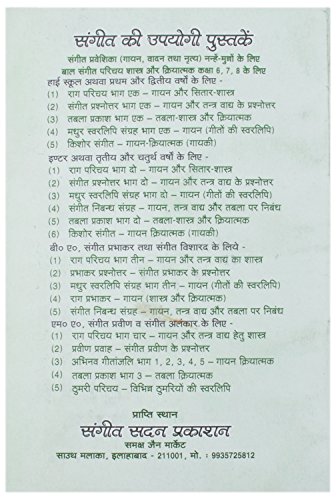 संगीत की उपयोगी पुस्तकें
संगीत प्रवेशिका (गायन, वादन तथा नृत्य) नन्हें-मुन्नों के लिए
बाल संगीत परिचय शास्त्र और क्रियात्मक कक्षा 6, 7, 8 के लिए
हाई स्कूल अथवा प्रथम और द्वितीय वर्षो के लिए -
(1) राग परिचय भाग एक – गायन और सितार-शास्त्र
(2) संगीत प्रश्नोत्तर भाग एक – गायन और तन्त्र वाद्य के प्रश्नोत्तर
(3) तबला प्रकाश भाग एक – तबला-शास्त्र और क्रियात्मक
(4) मधुर स्वरलिपि संग्रह भाग एक – गायन (गीतों की स्वरलिपि)
(5) किशोर संगीत – गायन-क्रियात्मक (गायकी)
इण्टर अथवा तृतीय और चतुर्थ वर्षो के लिए -
(1) राग परिचय भाग दो – गायन और सितार-शास्त्र
(2) संगीत प्रश्नोत्तर भाग दो – गायन और तन्त्र वाद्य के प्रश्नोत्तर
(3) मधुर स्वरलिपि संग्रह भाग दो – गायन (गीतों की स्वरलिपि)
(4) संगीत निबन्ध संग्रह – गायन, तन्त्र वाद्य और तबला पर निबंध
(5) तबला प्रकाश भाग दो – तबला-शास्त्र और क्रियात्मक
(6) किशोर संगीत – गायन – क्रियात्मक (गायकी)
बी० ए०, संगीत प्रभाकर तथा संगीत विशारद के लिये -
(1) राग परिचय भाग तीन – गायन और तन्त्र वाद्य का शास्त्र
(2) प्रभाकर प्रश्नोत्तर – संगीत प्रभाकर के प्रश्नोत्तर
(3) मधुर स्वरलिपि संग्रह भाग तीन – गायन (गीतों की स्वरलिपि)
(4) राग प्रभाकर – गायन (शास्त्र और क्रियात्मक)
(5) संगीत निबन्ध संग्रह – गायन, तन्त्र वाद्य और तबला पर निबंध
एम० ए०, संगीत प्रवीण व संगीत अलंकार के लिए -
(1) राग परिचय भाग चार – गायन और तन्त्र वाद्य हेतु शास्त्र
(2) प्रवीण प्रवाह – संगीत प्रवीण के प्रश्नोत्तर
(3) अभिनव गीतांजलि भाग 1, 2, 3, 4, 5 – गायन क्रियात्मक
(4) तबला प्रकाश भाग 3 – तबला क्रियात्मक
(5) ठुमरी परिचय – विभिन्न ठुमरियों की स्वरलिपि
प्राप्ति स्थान
संगीत सदन प्रकाशन
समक्ष जैन मार्केट
साउथ मलाका, इलाहाबाद - 211001, मो. : 9935725812